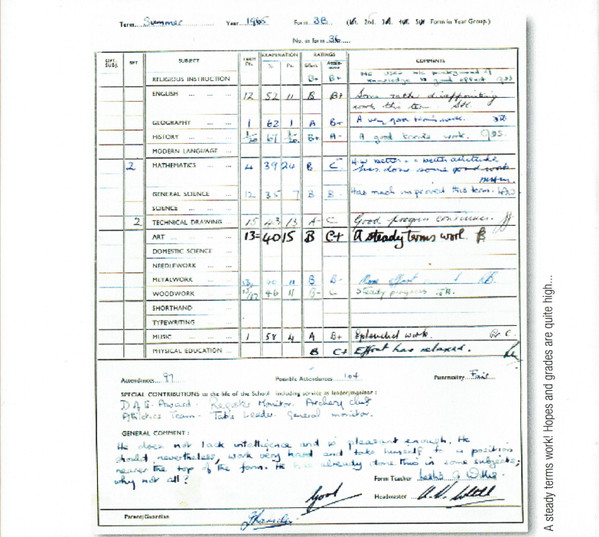 Term Summer Year 1965 Form 3B (1st. 2nd. 3rd. 4th. 5th Form in Year Group.)
No. in form 36
OPT. SUBJ. SET SUBJECT TERM Pn. EXAMINATION % Pn. RATINGS Effort Attain- ment COMMENTS
RELIGIOUS INSTRUCTION B+ B+ He uses his background of knowledge to good effect
ENGLISH 12 52 11 B B+ Some rather disappointing
work this term
GEOGRAPHY 1 62 1 A B+ A very good term's work.
HISTORY 61 B+ A- A good term's work.
MODERN LANGUAGE
2 MATHEMATICS 4 39 20 B C better attitude
has done some good work
GENERAL SCIENCE 12 35 7 B B Has much improved this term.
SCIENCE
2 TECHNICAL DRAWING 15 43 13 A- C Good progress continues.
ART 13= 40 15 B C+ A steady terms work
DOMESTIC SCIENCE
NEEDLEWORK
METALWORK 11 B B- More effort
WOODWORK 46 11 B- C Steady progress
SHORTHAND
TYPEWRITING
MUSIC 1 58 4 A B+ Splendid work.
PHYSICAL EDUCATION B C+ Effort has relaxed.
Attendances 97 Possible Attendances 104 Punctuality Fair
SPECIAL CONTRIBUTIONS to the life of the School including service as leader/monitor:
D.A.G. Award - Register Monitor. Archery club
Athletics Team - Table Leader. General monitor.
GENERAL COMMENT:
He does not lack intelligence and is pleasant enough. He
should nevertheless, work very hard and take himself to a position
nearer the top of the form. He has already done this in some subjects;
why not all?
Form Teacher
Good
Headmaster
Parent/Guardian
A steady terms work! Hopes and grades are quite high...